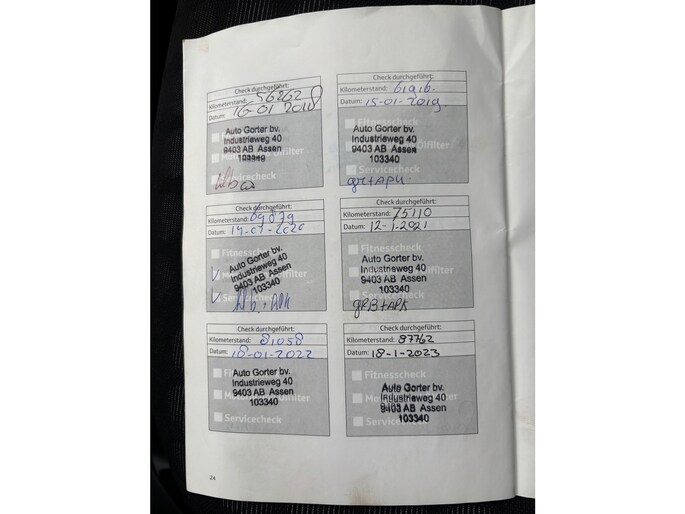 Check durchgeführt:
Kilometerstand: 56262
Datum: 16-01 2018
Auto Gorter bv.
Industrieweg 40
9403 AB Assen
103340
Check durchgeführt:
Kilometerstand: 61916
Datum: 15-01-2019
Fitnesscheck
Auto Gorter bv.
Industrieweg 40
9403 AB Assen
103340
Servicecheck
gr+APK
Check durchgeführt:
Kilometerstand: 69879
Datum: 14-01-2020
Fitnesscheck
Auto Gorter bv.
Industrieweg 40
9403 AB Assen
103340
Servicecheck
Check durchgeführt:
Kilometerstand: 75110
Datum: 12-1-2021
Fitnesscheck
Auto Gorter bv.
Industrieweg 40
9403 AB Assen
103340
Servicecheck
gRB+APK
Check durchgeführt:
Kilometerstand: 81058
Datum: 18-01-2022
Fitnesscheck
Auto Gorter bv.
Industrieweg 40
9403 AB Assen
103340
Servicecheck
Check durchgeführt:
Kilometerstand: 87762
Datum: 18-1-2023
Fitnesscheck
Auto Gorter bv.
Industrieweg 40
9403 AB Assen
103340
Servicecheck
24